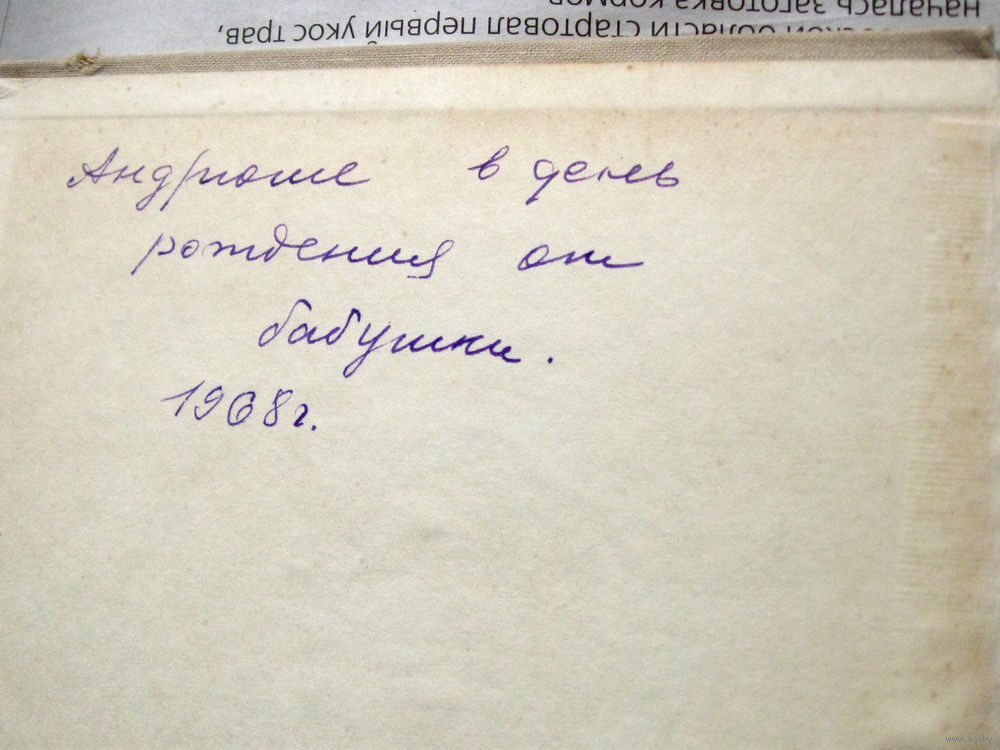 началась заготовка кормов
области стартовал первый укос трав,
Андрюше в день
рождения от
бабушки.
1968г.
www.ay.by